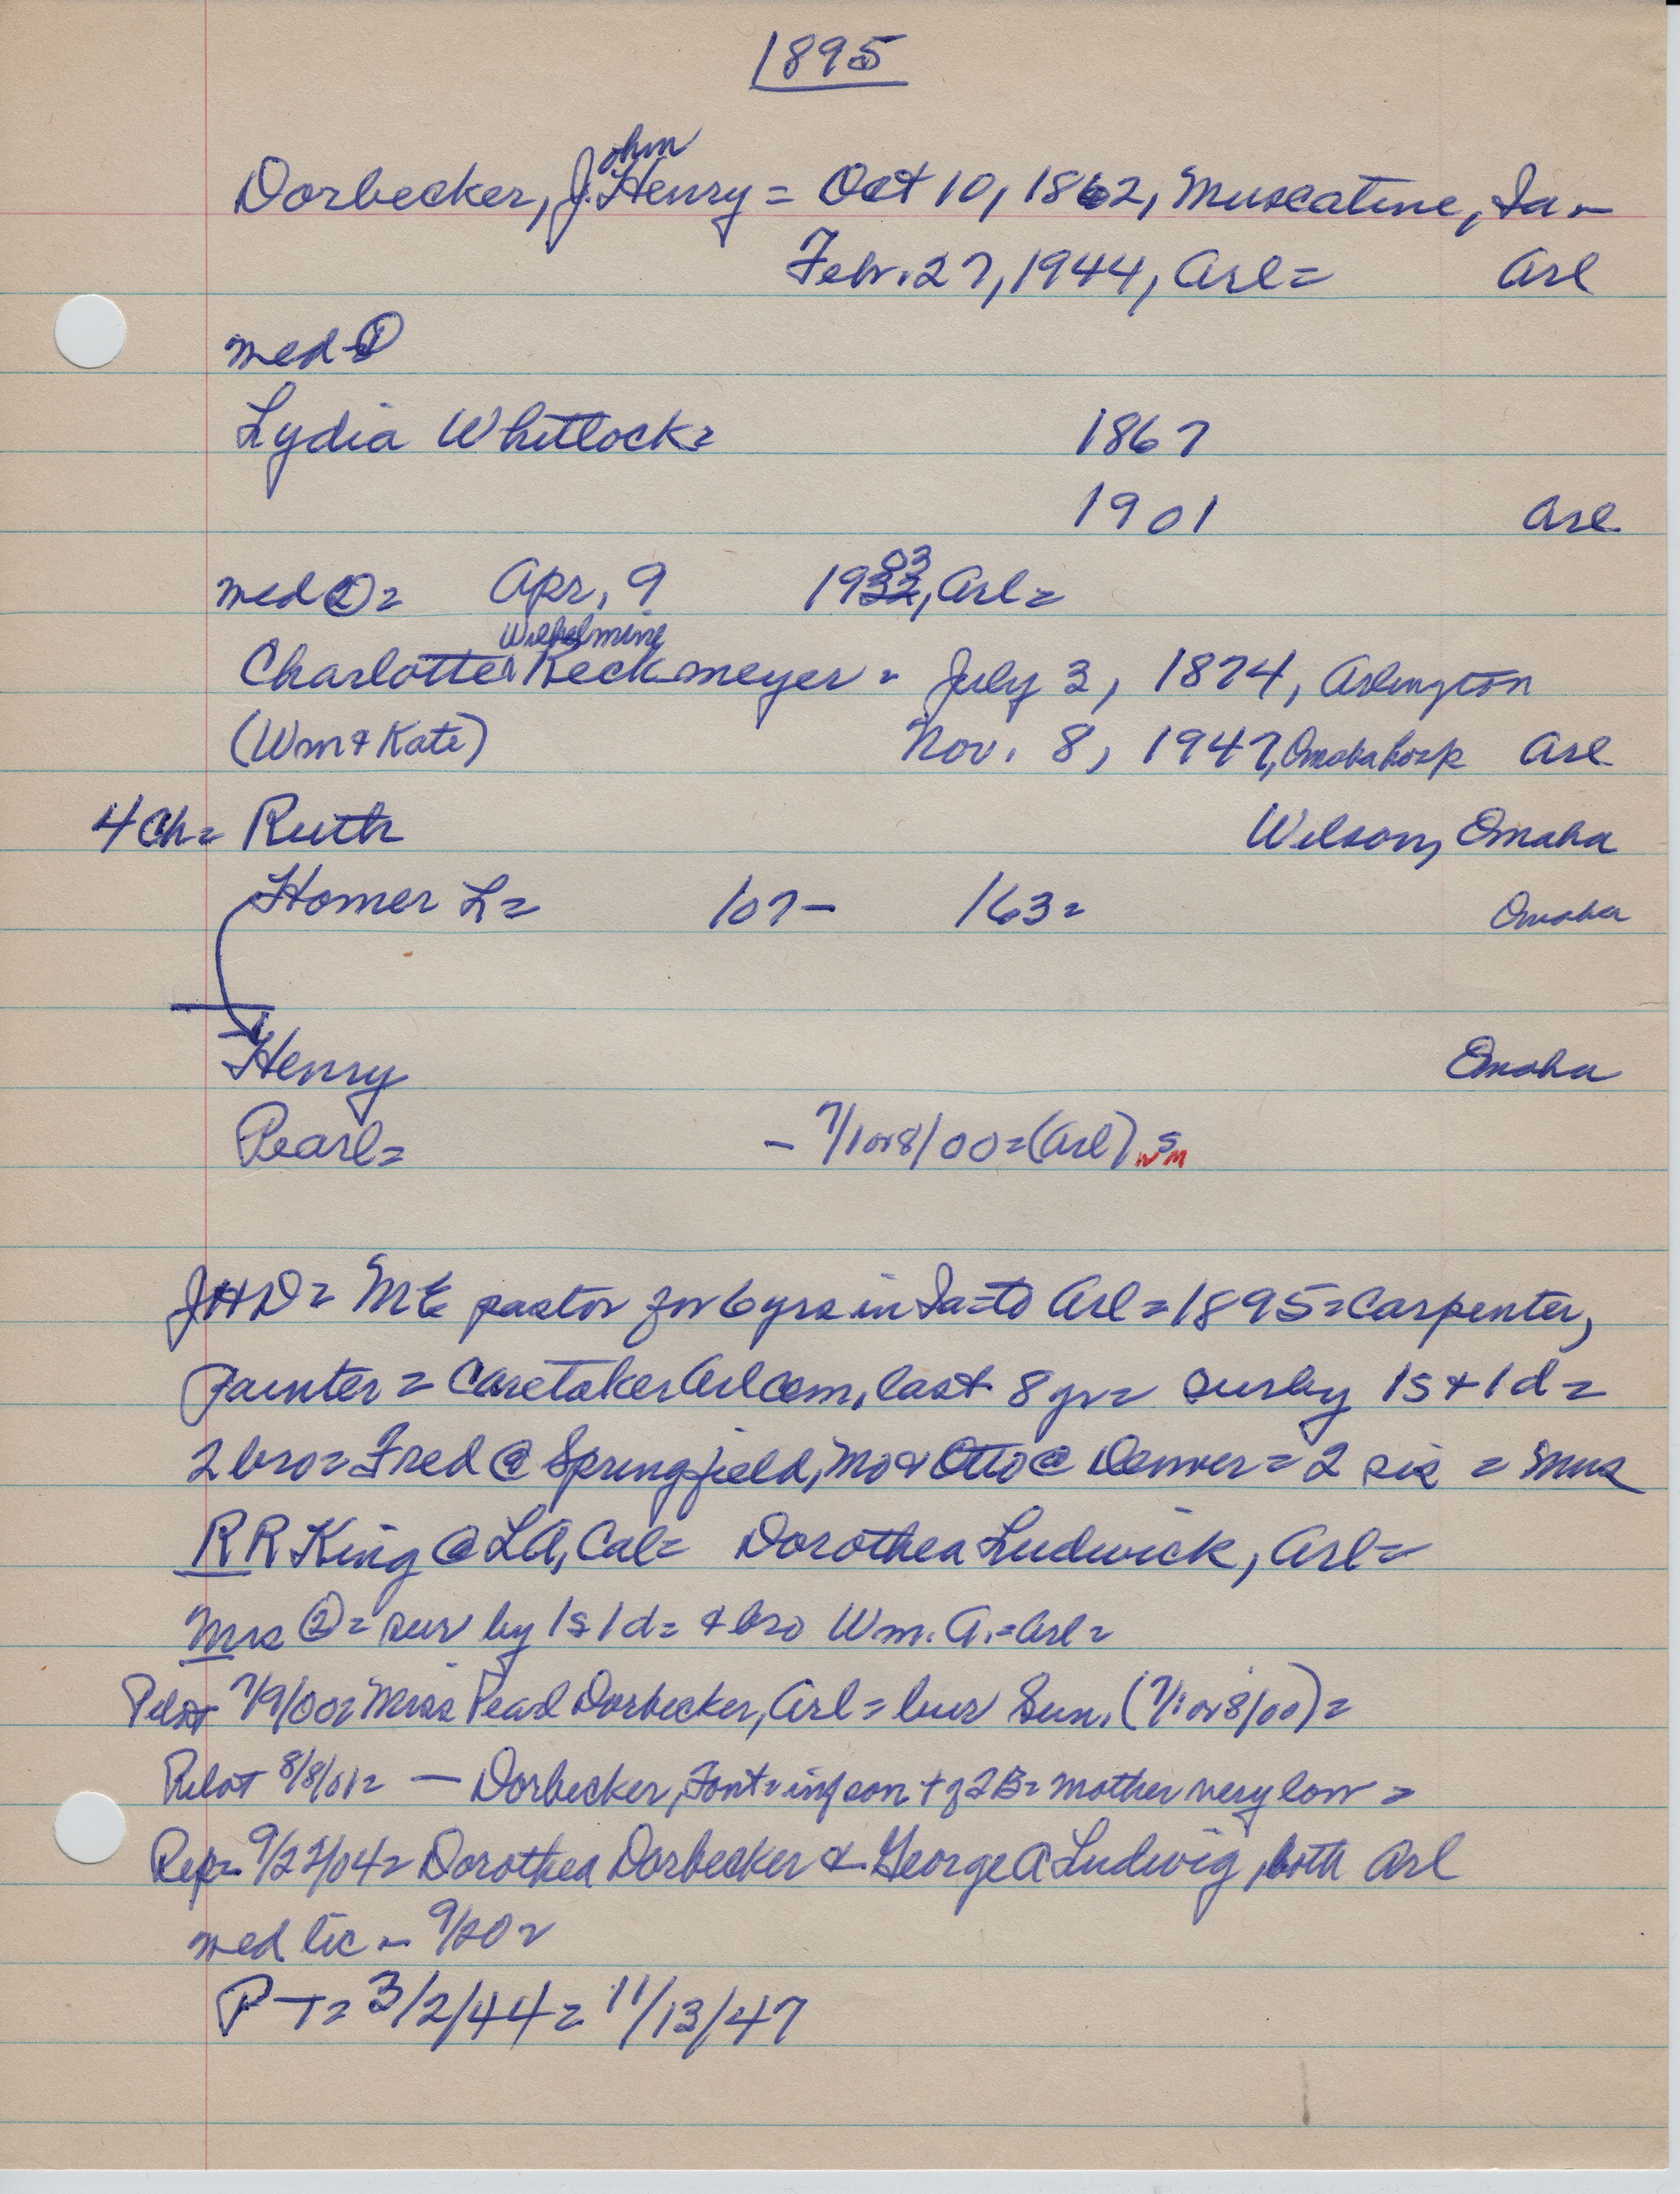 1895
Dorbecker, J.ohn Henry = Oct 10, 1862, Muscatine, Ia -
Febr. 27, 1944, Arl = Arl
med ①
Lydia Whitlock = 1867
1901 Arl
med ② = Apr, 9 1932, 03 Arl =
Wilhelmine
Charlotte Reckmeyer = July 3, 1874, Arlington
(Wm & Kate) Nov. 8, 1947, Omaha hosp Arl
4 Ch = Ruth Wilson, Omaha
Homer L = 107 - 163 = Omaha
Henry Omaha
Pearl = - 7/1 or 8/00 = (Arl) NSM
JHD = ME pastor for 6 yrs in Ia = to Arl = 1895 = carpenter,
painter = caretaker Arl cem, last 8 yr = sur by 1s + 1d =
2 bro = Fred @ Springfield, Mo & Otto @ Denver = 2 sis = Mrs
RR King @ LA, Cal = Dorothea Ludwick, Arl =
Mrs ② = sur by 1s 1d = & bro Wm. A. = Arl =
Pilot 7/9/00 = Miss Pearl Dorbecker, Arl = bur Sun. (7/1 or 8/00) =
Pilot 8/8/01 = — Dorbecker, Font = inf son + of 2B = mother very low =
Rep = 9/22/04 = Dorothea Dorbecker & George A Ludwig, both Arl
med lic - 9/20 =
P-T = 3/2/44 = 11/13/47